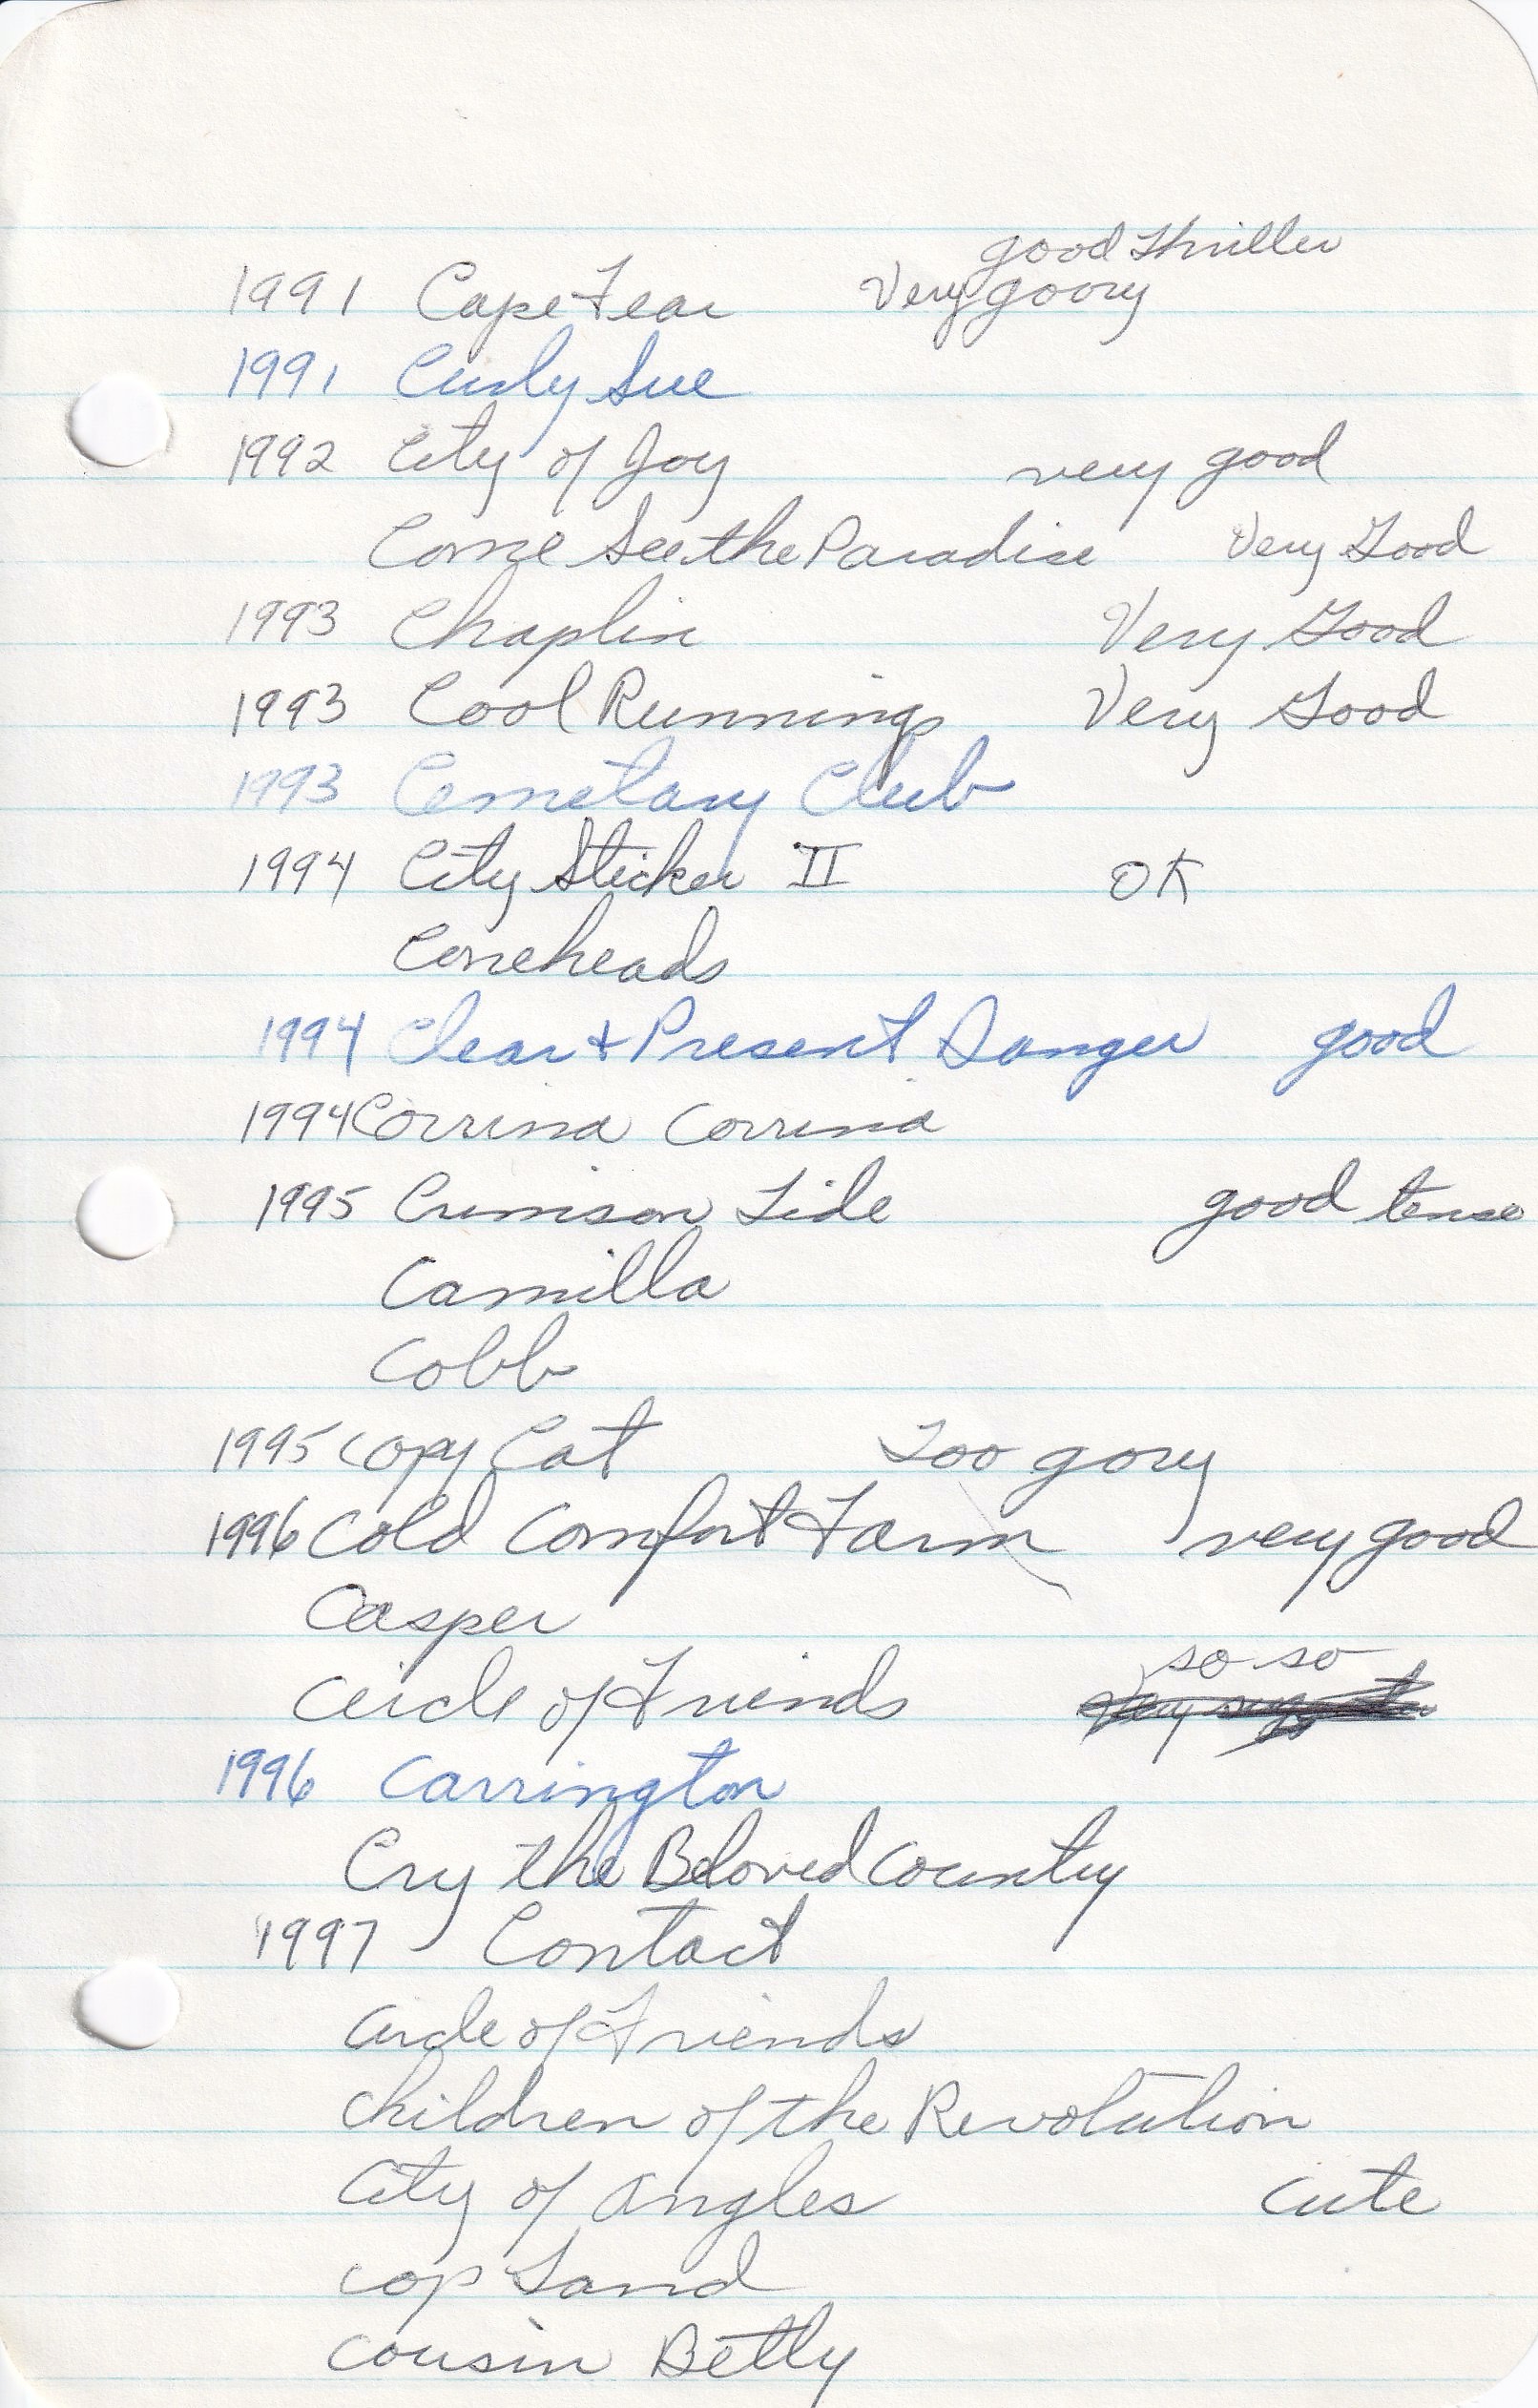 good Thriller
1991 Cape Fear Very goory
1991 Curly Sue
1992 City of Joy very good
Come See the Paradise Very Good
1993 Chaplin Very Good
1993 Cool Runnings Very Good
1993 Cemetary Club
1994 City Slicker II OK
Coneheads
1994 Clear + Present Danger good
1994 Corrina Corrina
1995 Crimison Tide good tense
Camilla
Cobb
1995 Copy Cat Too gory
1996 Cold Comfort Farm very good
Casper
so so
Circle of Friends Very
1996 Carrington
Cry the Beloved Country
1997 Contact
Circle of Friends
Children of the Revolution
City of Angles cute
Cop Land
Cousin Betty